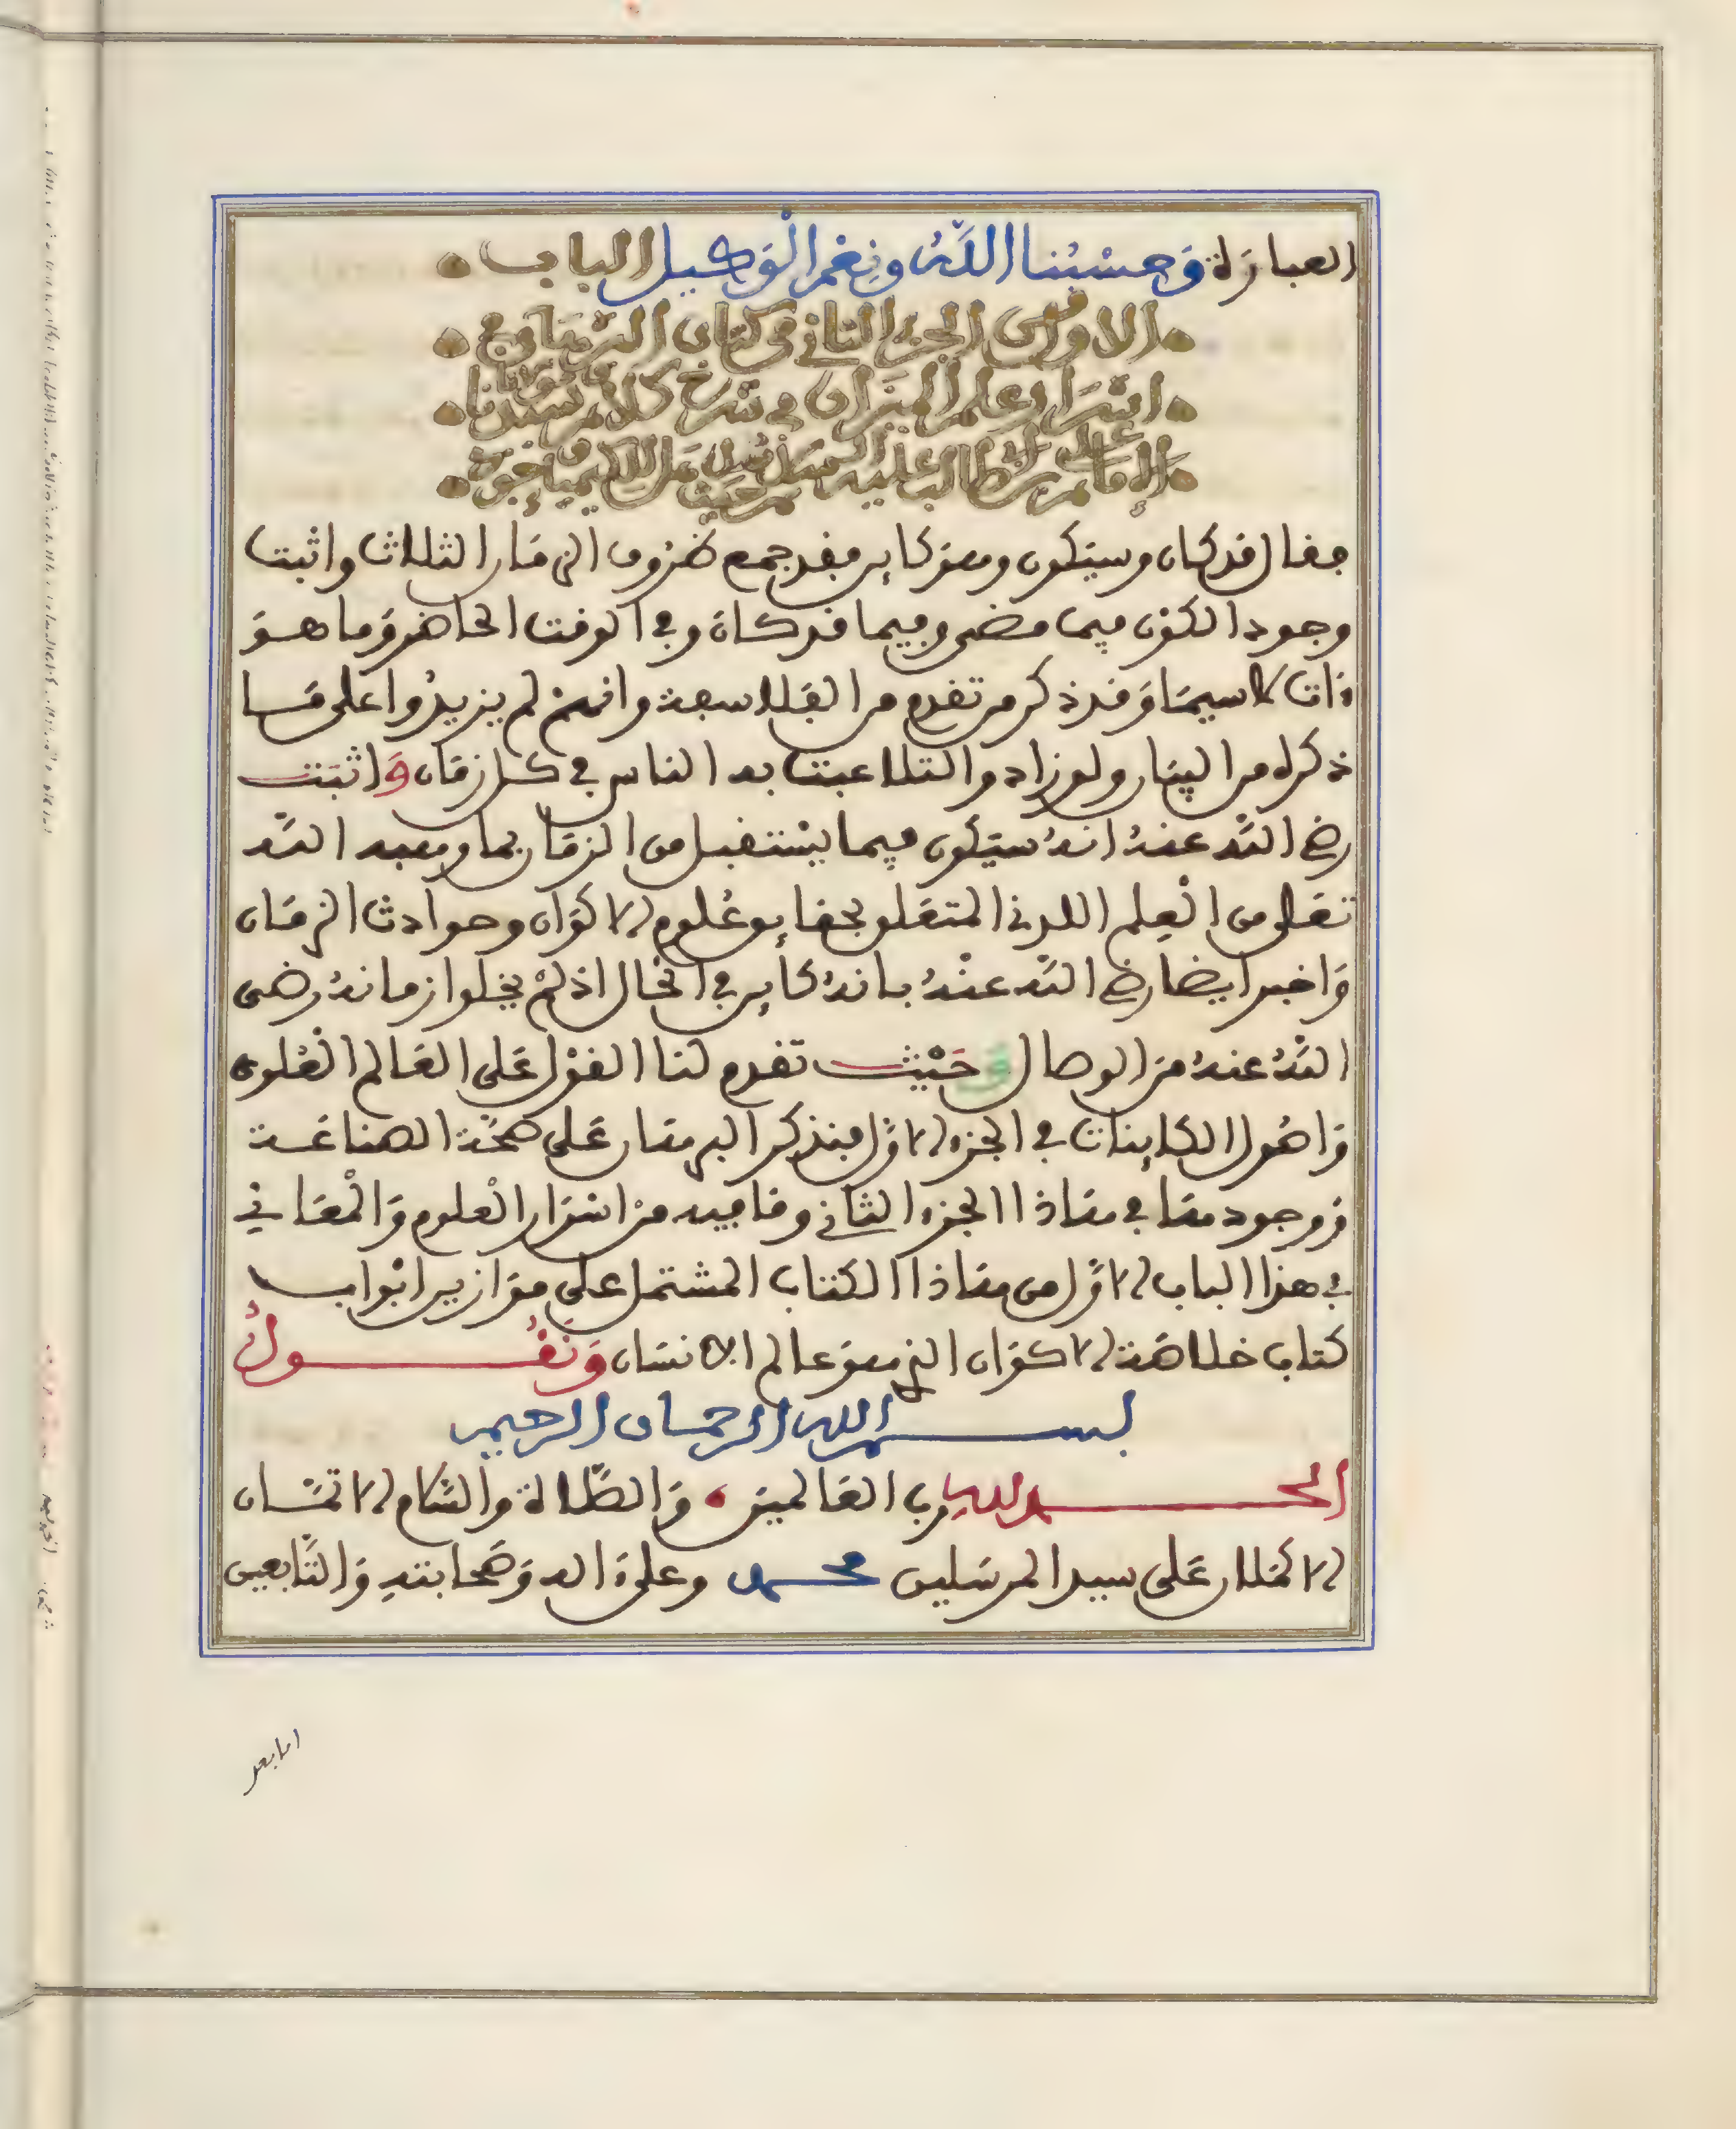 العبارة وَحسْبُنا اللَّهُ ونِعْمَ الْوَكيل الباب
الاول من الجزء الثاني من كتاب البرهان في
اسرار علم الميزان في شرح كلام سيدنا ومولانا
الإمام علي بن ابي طالب عليه السلام
فقال قد كان وسيكون وهو كاين فقد جمع ظروف الزمان الثلاث واثبت
وجود الكون فيما مضى وفيما قد كان وفي الوقت الحاضر وما هو
ءات لاسيما وَقد ذكر من تقدم من الفلاسفة وانهم لم يزيدُوا على مَا
ذكره من البيان ولو زاد والتلاعبت به الناس في كل زمان وَاثبَت
رضي الله عنهُ انهُ سيكون فيما يسْتقبل من الزمان بما وهبه الله
تعَلى من الْعِلم اللدني المتعَلق بحقايق عُلوم الاكوَان وحوادث الزمَان
وَاخبر ايضا رضي الله عنْهُ بانهُ كاين في الحَال اذ لمْ يخلوا زمانهُ رضى
اللَّهُ عنهُ مِن الوصال وَحَيْث تقدم لنا القوْل عَلى العَالم الْعُلوي
وَاصُول الكاينات في الجزء الاوَّل فنذكر البرهان عَلى صحَّة الصناعَة
وَوجودها في هَاذا الجزء الثاني وما فيه من اسْرَار الْعلوم وَالْمعَاني
في هذا الباب الاوَّل من هَاذا الكتاب المشتمل عَلى موَازين ابْواب
كتاب خلاصَة الاكوَان الذي هو عالم الانسَان وَنَقُولُ
بسم الله الرحمان الرحيم
الحمد لله رب العَالمين وَالصَّلاة والسَّلام الاتمَّان
الاكمَلان عَلى سيد المرسَلين محمد وعلىٰ ءاله وَصَحابتهِ وَالتَّابعين
اما بعد